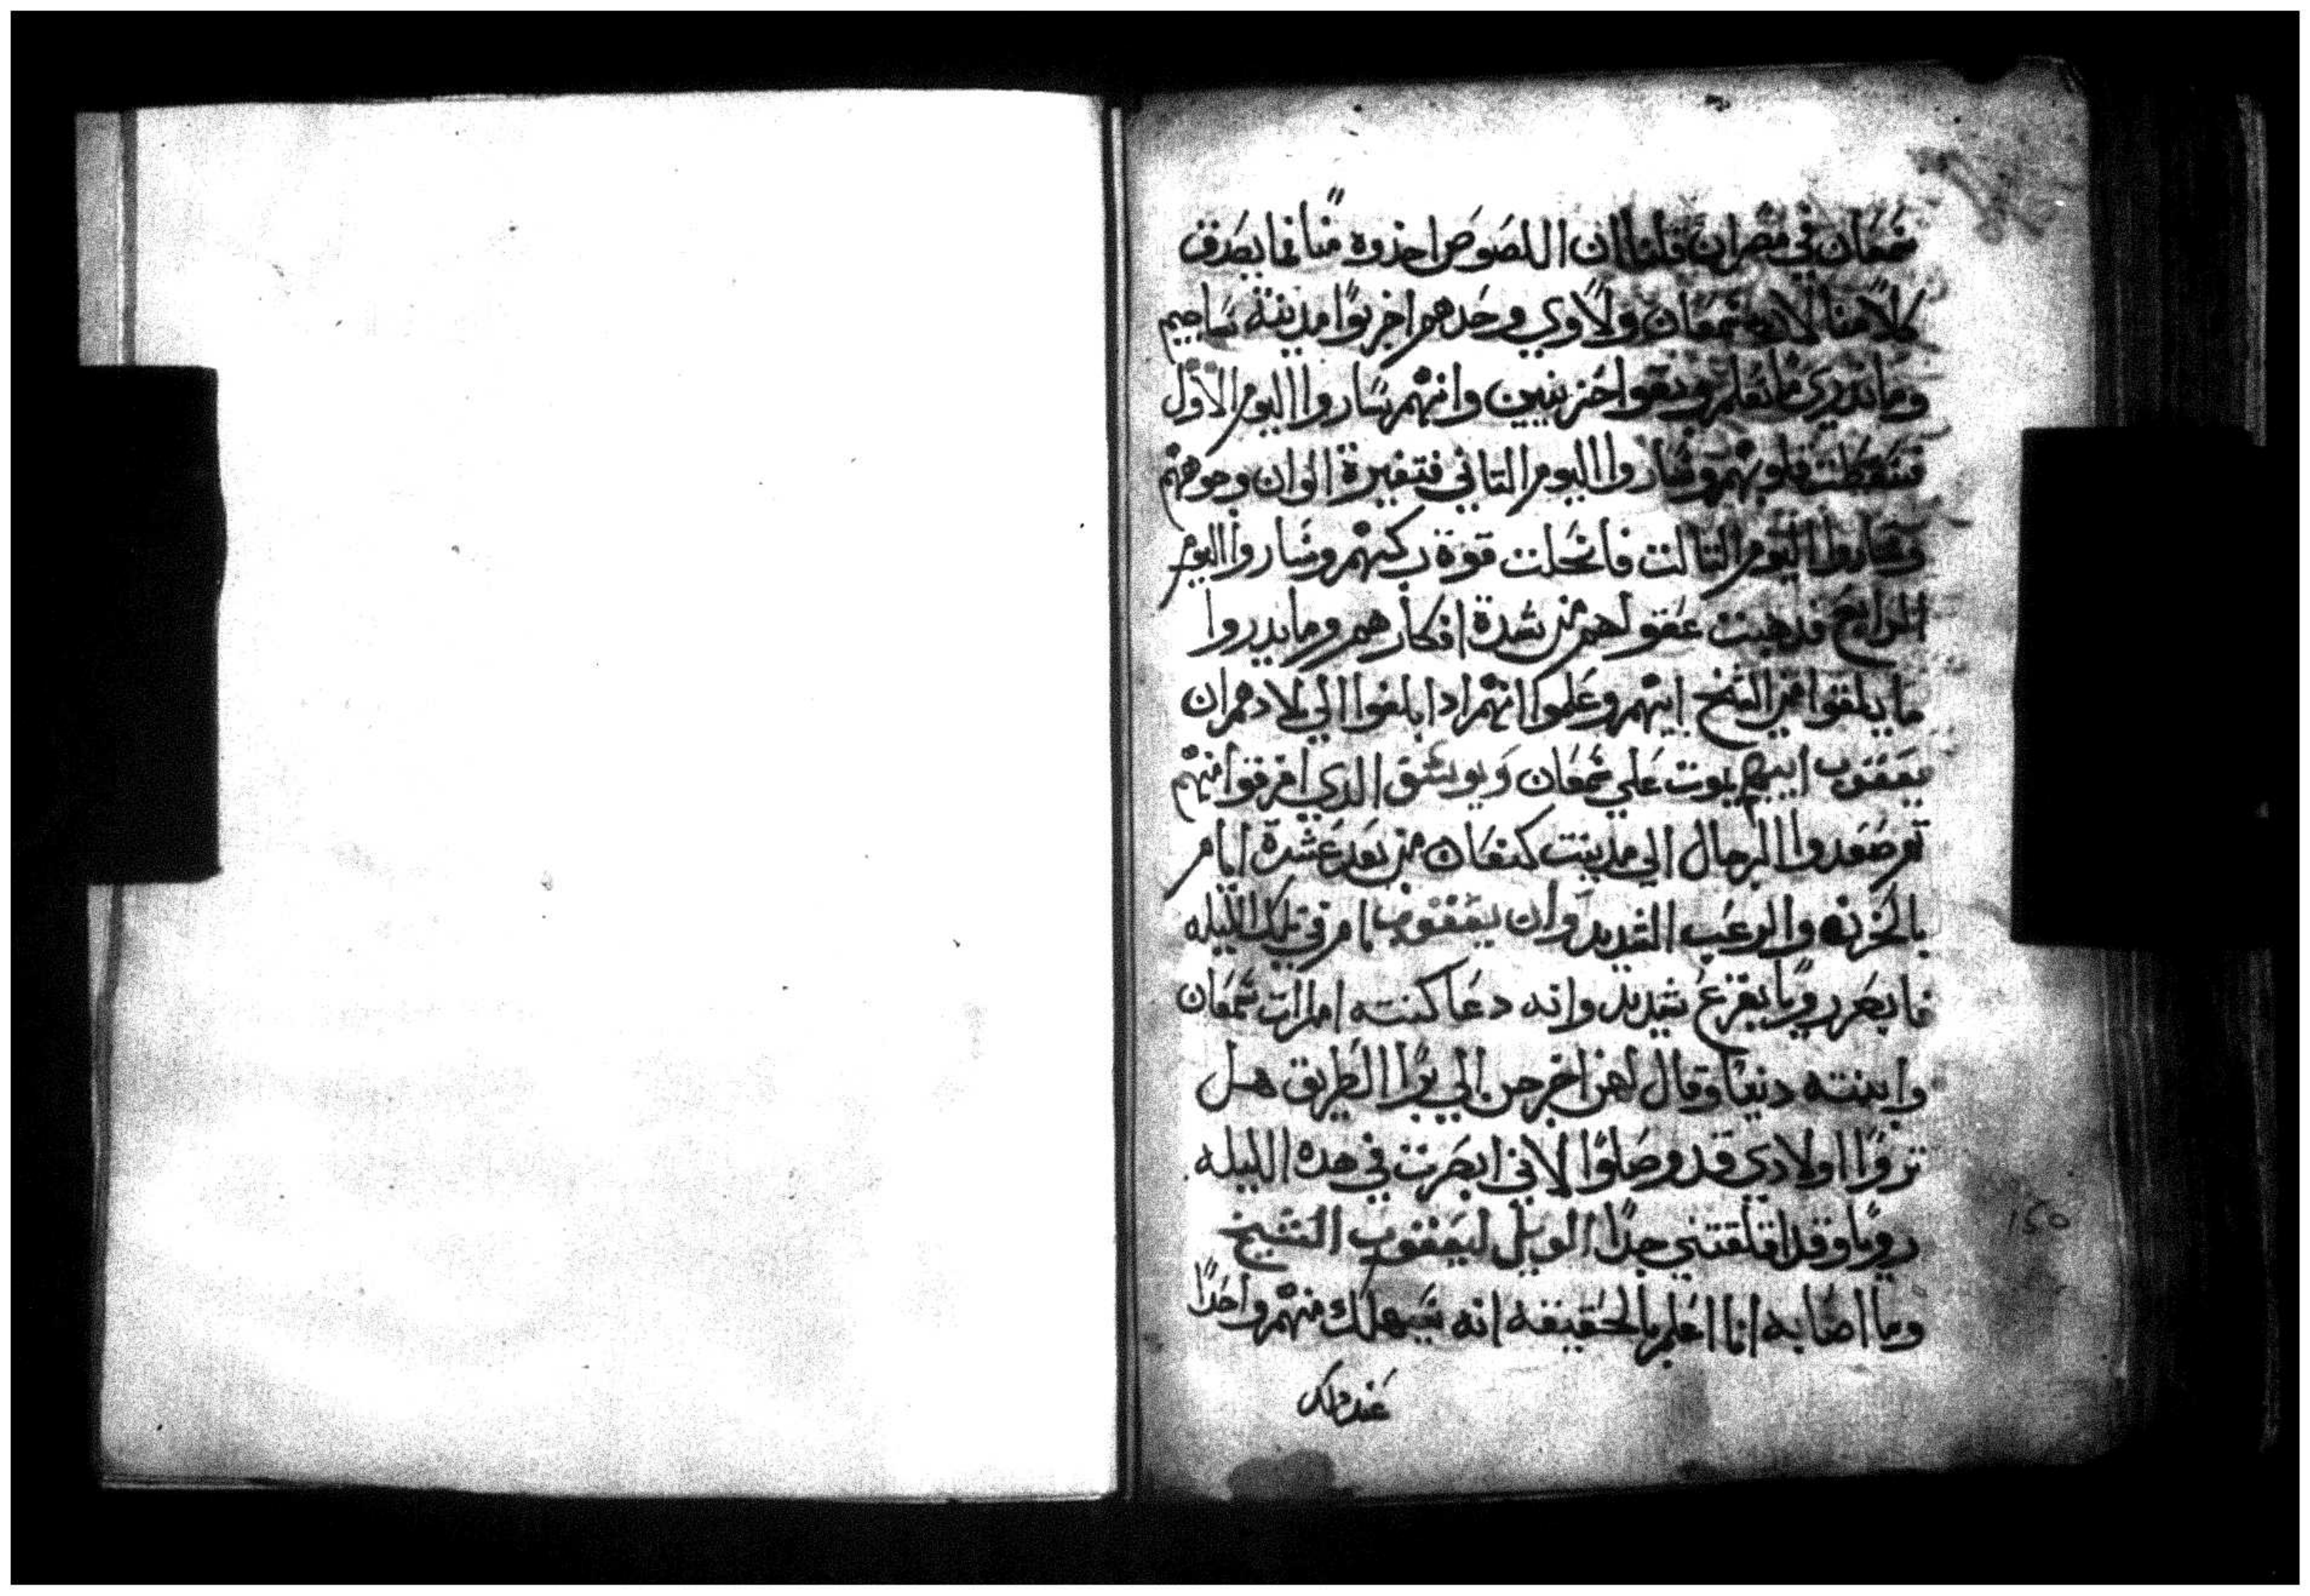 شمعان في مصران قلنا ان اللصوص اخذوه منا فما يصدق
كلامنا لانه شمعان ولاوي وحدهم اخربوا مدينة ساجيم
وما ندري ما نعلم وبقوا حزينين وانهم ساروا اليوم الاول
فتقطت قلوبهم وساروا اليوم التاني فتغيرة الوان وجوههم
وساروا اليوم التالت فانحلت قوة ركبهم وشاروا اليوم
الرابع فدهبت عقولهم من شدة افكارهم وما يدروا
ما يلقوا من الشيخ ابيهم وعلموا انهم ادا بلغوا الي بلاد ممران
يعقوب ابيهم يموت علي شمعان ويوسف الدي افرقوا منهم
تم صعدوا الرجال الي مدينت كنعان من بعد عشرة ايام
بالحزن والرعب الشديد وان يعقوب نام في تلك الليله
فابصر رويا بفزع شديد وانه دعا كنته امرات شمعان
وابنته دينا وقال لهن اخرجن الي برا الطريق هل
تروا اولادي قد وصلوا لاني ابصرت في هده الليله
رويا وقد اقلقتني جدا الويل ليعقوب الشيخ
وما اصابه انا اعلم بالحقيقه انه سيهلك منهم واحدا
عند دلك
150